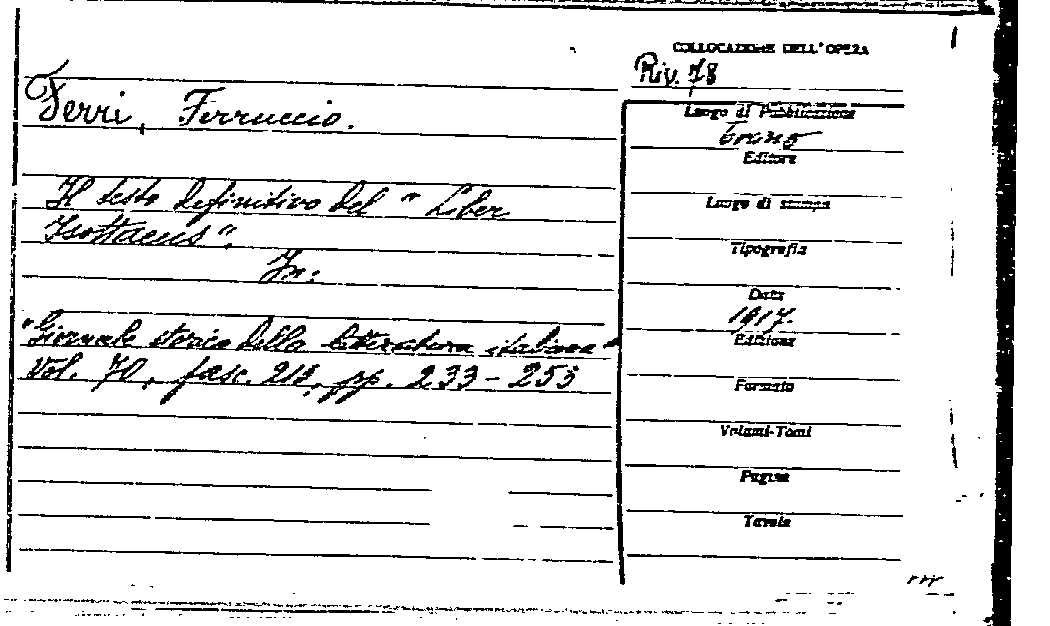 COLLOCAZIONE DELL'OPERA
Riv. 78
Ferri, Ferruccio.
Il testo definitivo del "Liber
Isottaeus".
In:
"Giornale storico della letteratura italiana"
Vol. 70, fasc. 212, pp. 233-255
Luogo di Pubblicazione
Torino
Editore
Luogo di stampa
Tipografia
Data
1917.
Edizione
Formato
Volumi-Tomi
Pagine
Tavole